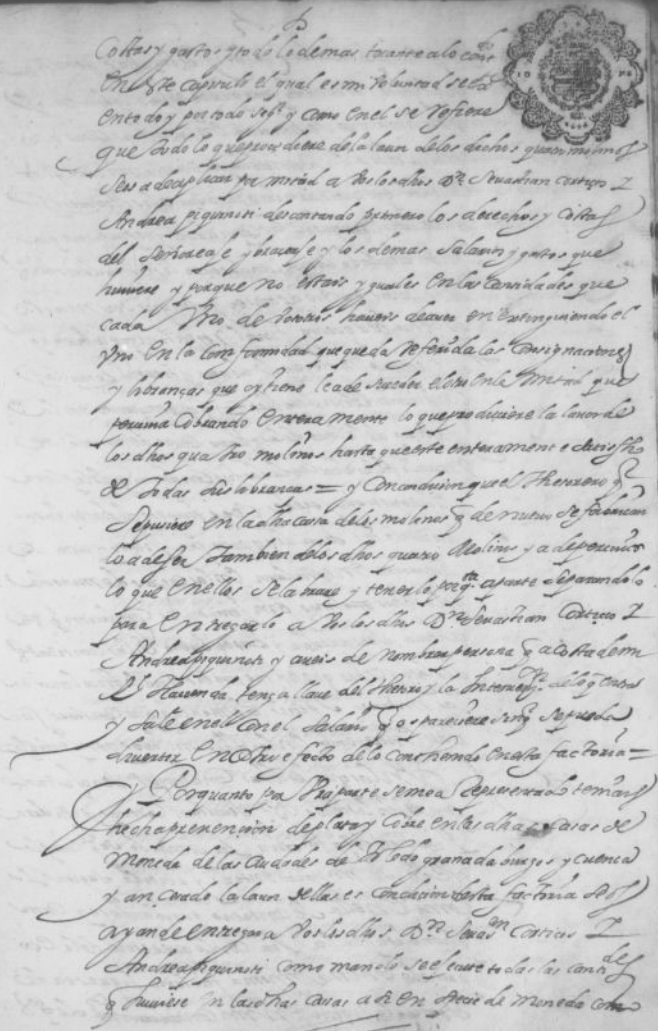 Costas y gastos y todo lo demas tocante a lo cont.do
en este capitulo el qual es mi Voluntad se
en todo y por todo seg.n y como en el se refiere
que todo lo que procediere de la lauor de los dichos quatro molinos
se os a de aplicar por mitad a Vos los dhos D.n Seuastian Cortiços Y
Andrea piquinoti descontando primero los derechos y costas
del señoreaje y braceaje y los demas salarios y gastos que
huuiere y porque no estais yguales en las cantidades que
cada Vno de Vosotros haueis de auer en extinguiendo el
Vno en la conformidad que queda referida las Consignaciones
y libranças que oy tiene le a de suceder el otro en la mitad que
perciuia cobrando enteramente lo que produciere la lauor de
los dhos quatro molinos hasta que este enteramente satisfho
de todas sus libranças = y Con condicion que el thesorero q
se pusiere en la dha casa de los molinos q de nueuo se fabrican
lo a de ser tambien de los dhos quatro Molinos y a de perciuir
lo que en ellos se labrare y tenerlo por q.ta aparte separandolo
para entregarlo a Vos los dhos D.n Seuastian Cortiços Y
Andrea piquinoti y aueis de nombrar persona q a costa de mi
R.l Hacienda tenga llaue del thesoro y la Interuen.on de lo q entra
y sale en el con el salario q os pareciere sin q se pueda
diuertir en otro efecto de lo contenido en esta factoria =
Y Porquanto por Vra parte se me a representado teneis
hecha preuencion de plata y cobre en las dhas Casas de
Moneda de las ciudades de Toledo granada burgos y cuenca
y an cesado la lauor dellas es condicion desta factoria se os
ayan de entregar a Vos los dhos D.n Seuas.an Cortiços Y
Andrea piquinoti como mando se execute todas las canti.des
q huuiere en las dhas casas asi en especie de moneda como